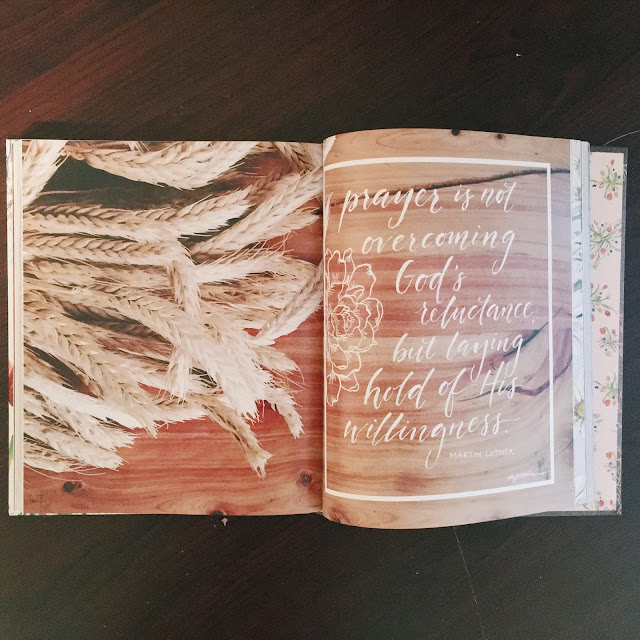 prayer is not
overcoming
God's
reluctance,
but laying
hold of His
willingness.
MARTIN LUTHER